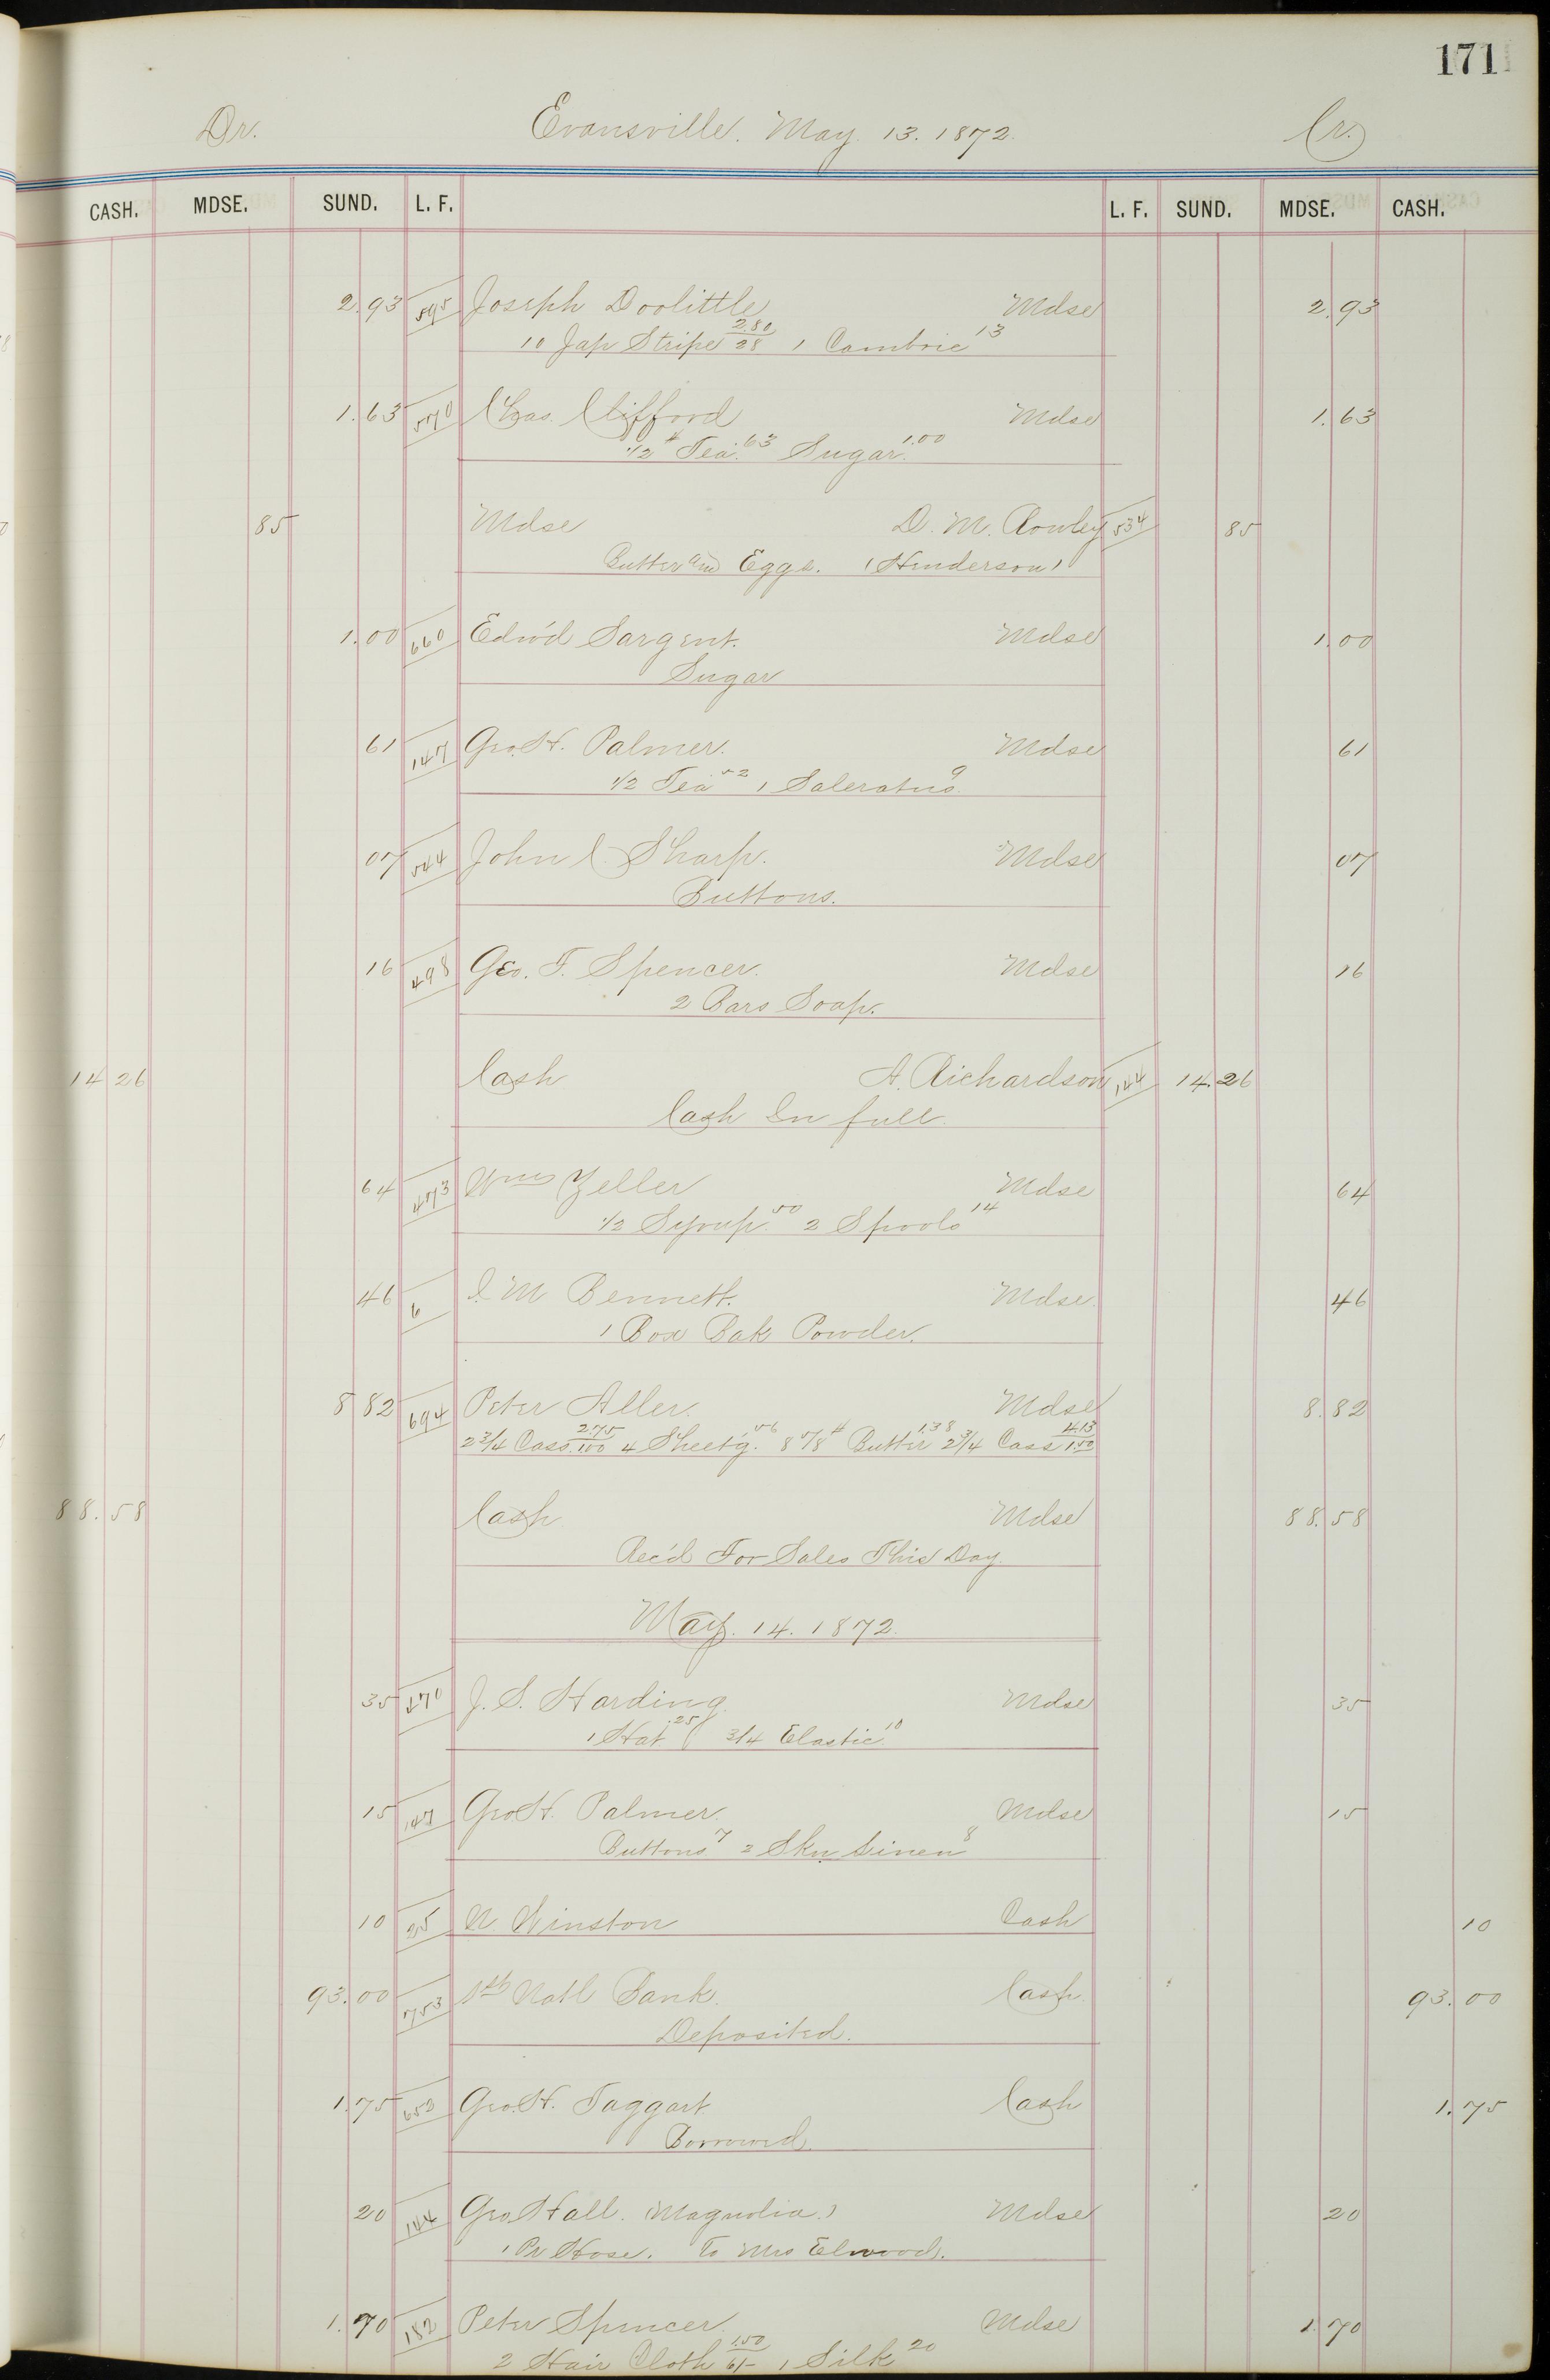 171
Dr. Evansville. May. 13. 1872. Cr.
CASH. MDSE. SUND. L. F. L. F. SUND. MDSE. CASH.
2.93 595 Joseph Doolittle Mdse 2.93
10 Jap Stripe 2.80/28 1 Cambric 13
1.63 570 Chas. Clifford Mdse 1.63
1/2 # Tea .63 Sugar 1.00
85 Mdse D. M. Rowley 534 85
Butter and Eggs. (Henderson)
1.00 660 Edw'd Sargent. Mdse 1.00
Sugar
61 147 Geo. H. Palmer. Mdse 61
1/2 Tea 52 1 Saleratus 9
07 544 John C. Sharp. Mdse 07
Buttons.
16 498 Geo. F. Spencer. Mdse 16
2 Bars Soap.
14 26 Cash A. Richardson 144 14.26
Cash In full.
64 473 Wm Zeller Mdse 64
1/2 Syrup. 50 2 Spools 14
46 6 I. M Bennett. Mdse. 46
1 Box Bak Powder.
8 82 694 Peter Aller. Mdse 8.82
2 3/4 Cass. 2.75/1.00 4 Sheet'g. 56 8 5/8 # Butter 1.38 2 3/4 Cass 4.13/1.50
88.58 Cash Mdse 88.58
Rec'd For Sales This Day.
May. 14. 1872.
35 570 J. S. Harding. Mdse 35
1 Hat .25 3/4 Elastic 10
15 147 Geo. H. Palmer. Mdse 15
Buttons 7 2 Skn Linen 8
10 25 N. Winston Cash 10
93.00 753 1st Natl Bank. Cash. 93.00
Deposited.
1.75 653 Geo. H. Taggart Cash 1.75
Borrowed.
20 144 Geo Hall. (Magnolia.) Mdse 20
1 Pr Hose. To Mrs Elwood.
1.70 182 Peter Spencer. Mdse 1.70
2 Hair Cloth 1.50/6/- 1 Silk 20